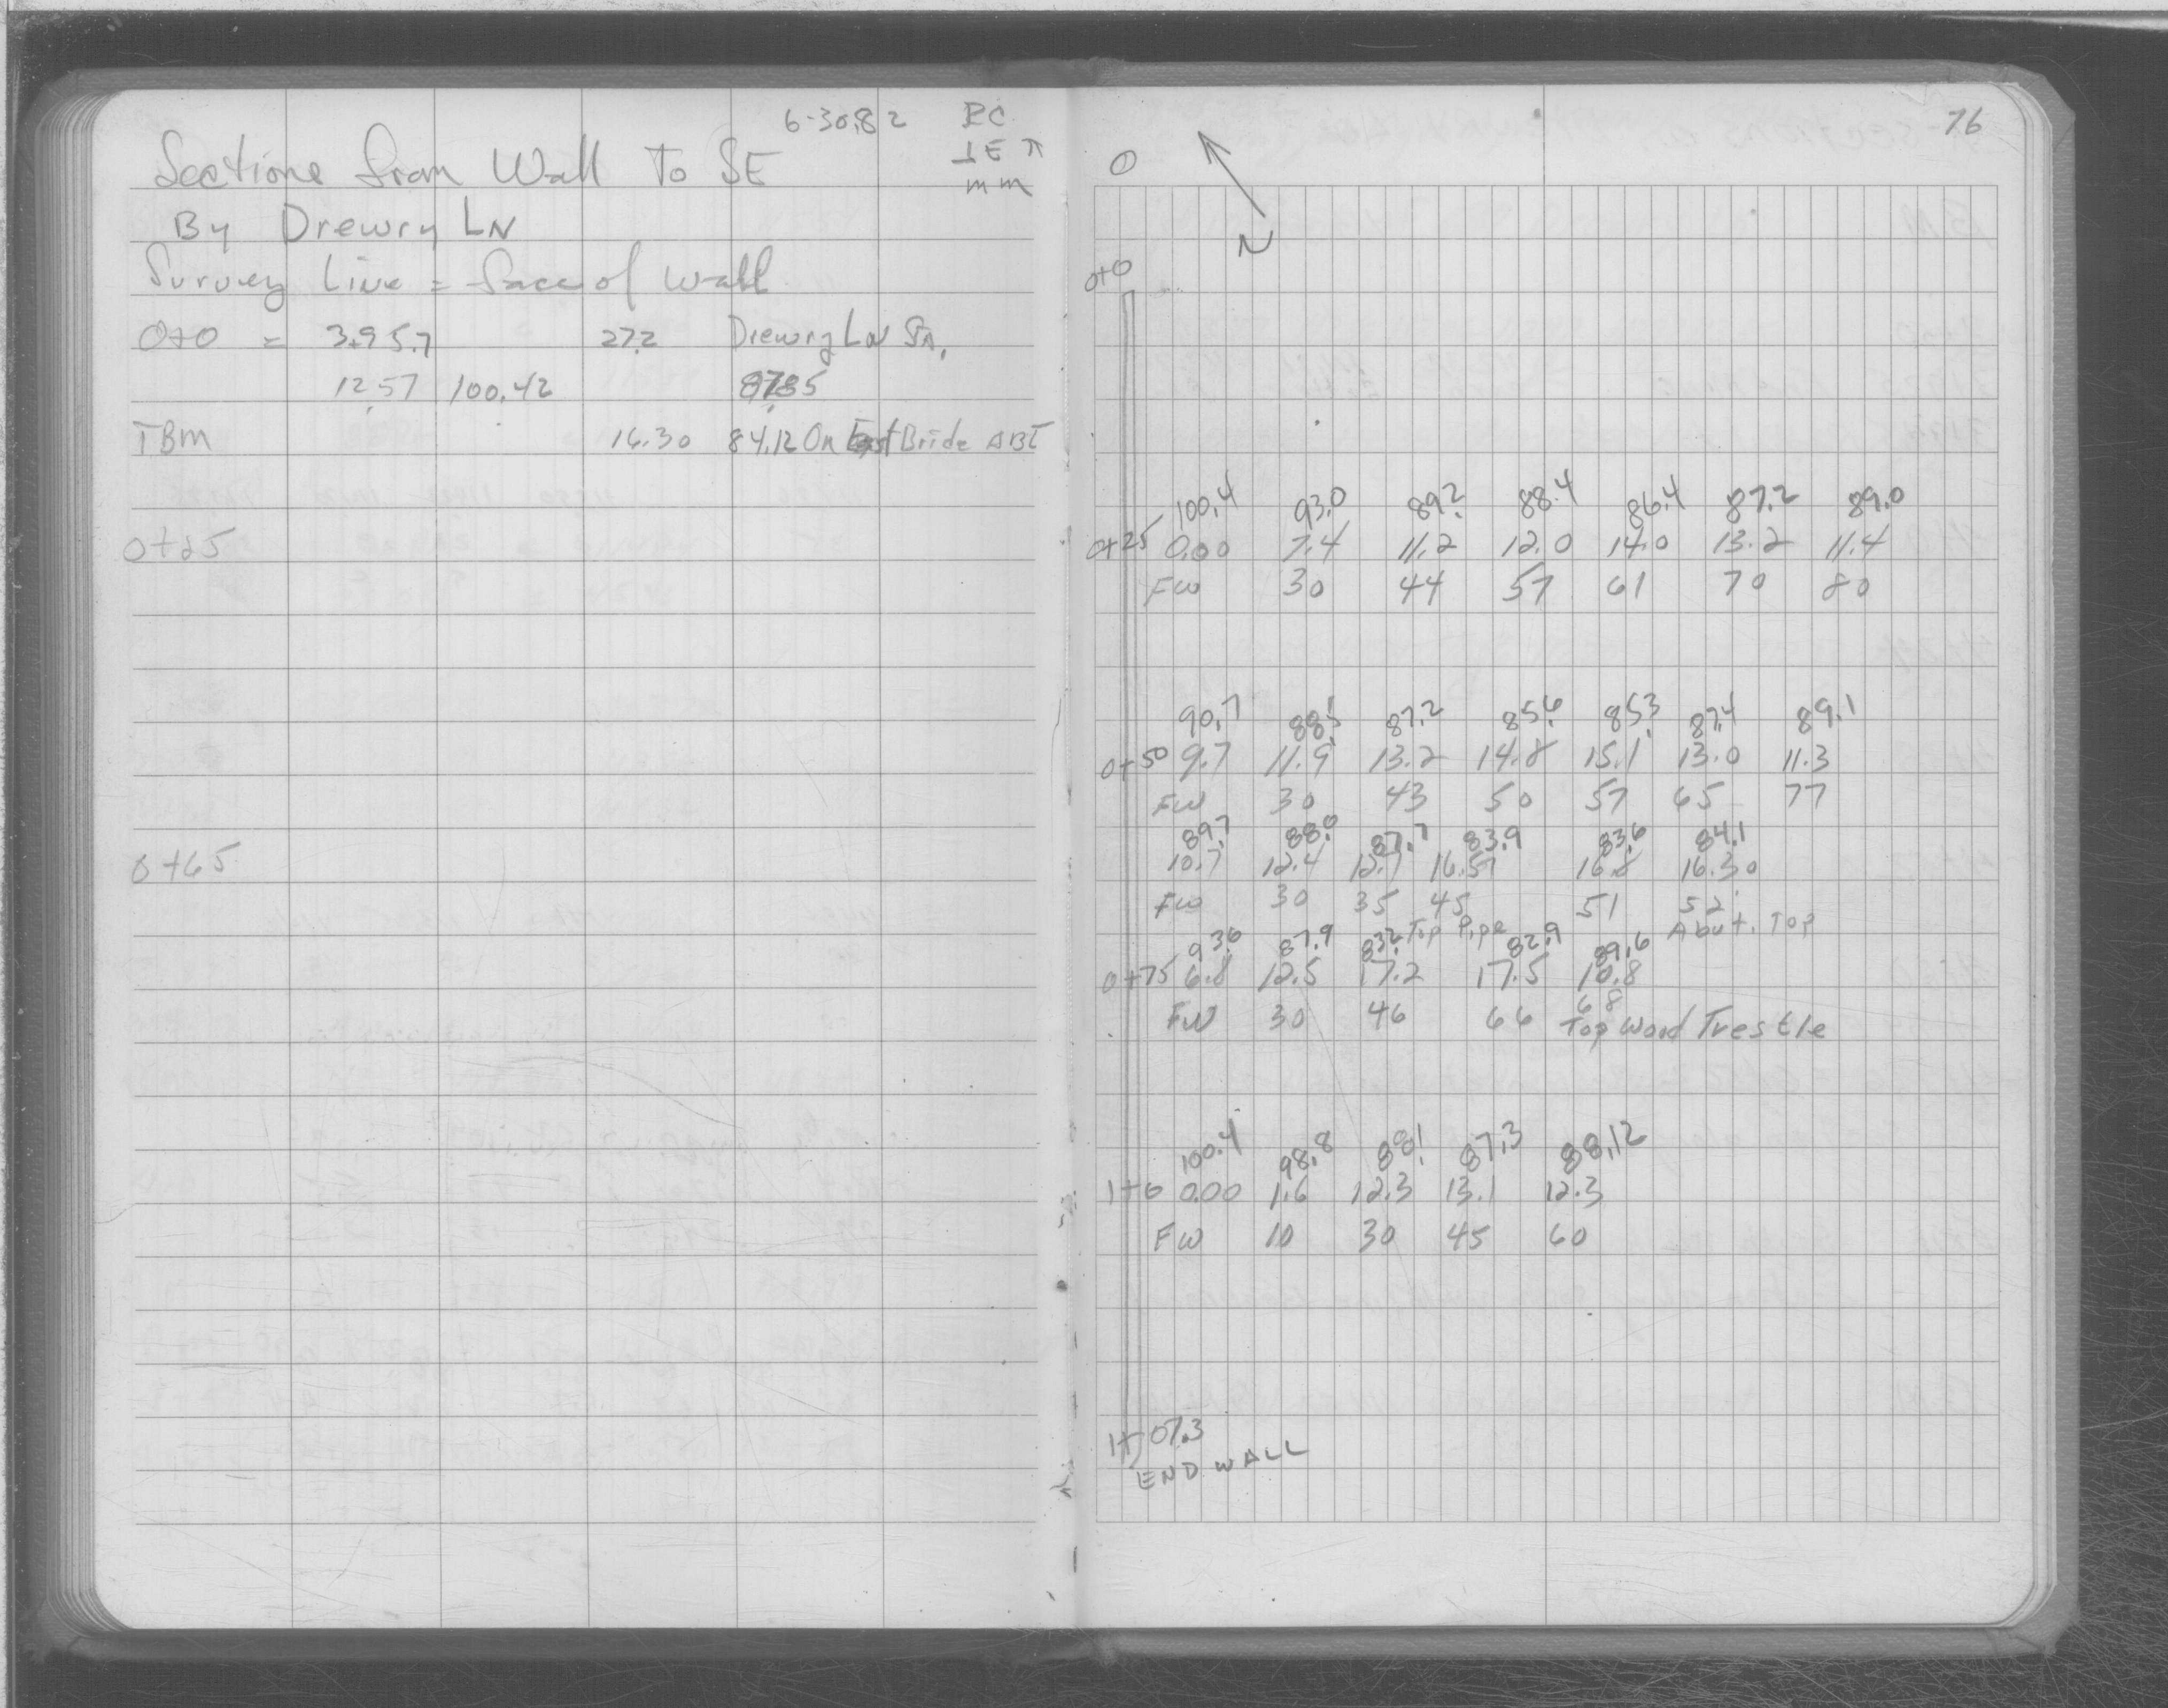 6-30-82 RC
Sections from Wall To SE
mm
By Drewry LN
Survey Line = face of Wall
0+0 = 3+95.7 27.2 Drewry LN STA.
12.57 100.42 87.85
TBM 16.30 84.12 On East Bride ABT
0+25
0+65
76
0
N
0+0
100.4 93.0 89.2 88.4 86.4 87.2 89.0
0+25 0.00 7.4 11.2 12.0 14.0 13.2 11.4
FW 30 44 57 61 70 80
90.7 88.5 87.2 85.6 85.3 87.4 89.1
0+50 9.7 11.9 13.2 14.8 15.1 13.0 11.3
FW 30 43 50 57 65 77
89.7 88.0 87.7 83.9 83.6 84.1
10.7 12.4 12.7 16.51 16.8 16.30
FW 30 35 45 51 52
Top Pipe Abut. Top
93.6 87.9 83.2 82.9 89.6
0+75 6.8 12.5 17.2 17.5 10.8
FW 30 46 66 68
Top Wood Trestle
100.4 98.8 88.1 87.3 88.12
1+0 0.00 1.6 12.3 13.1 12.3
FW 10 30 45 60
1+07.3
END WALL